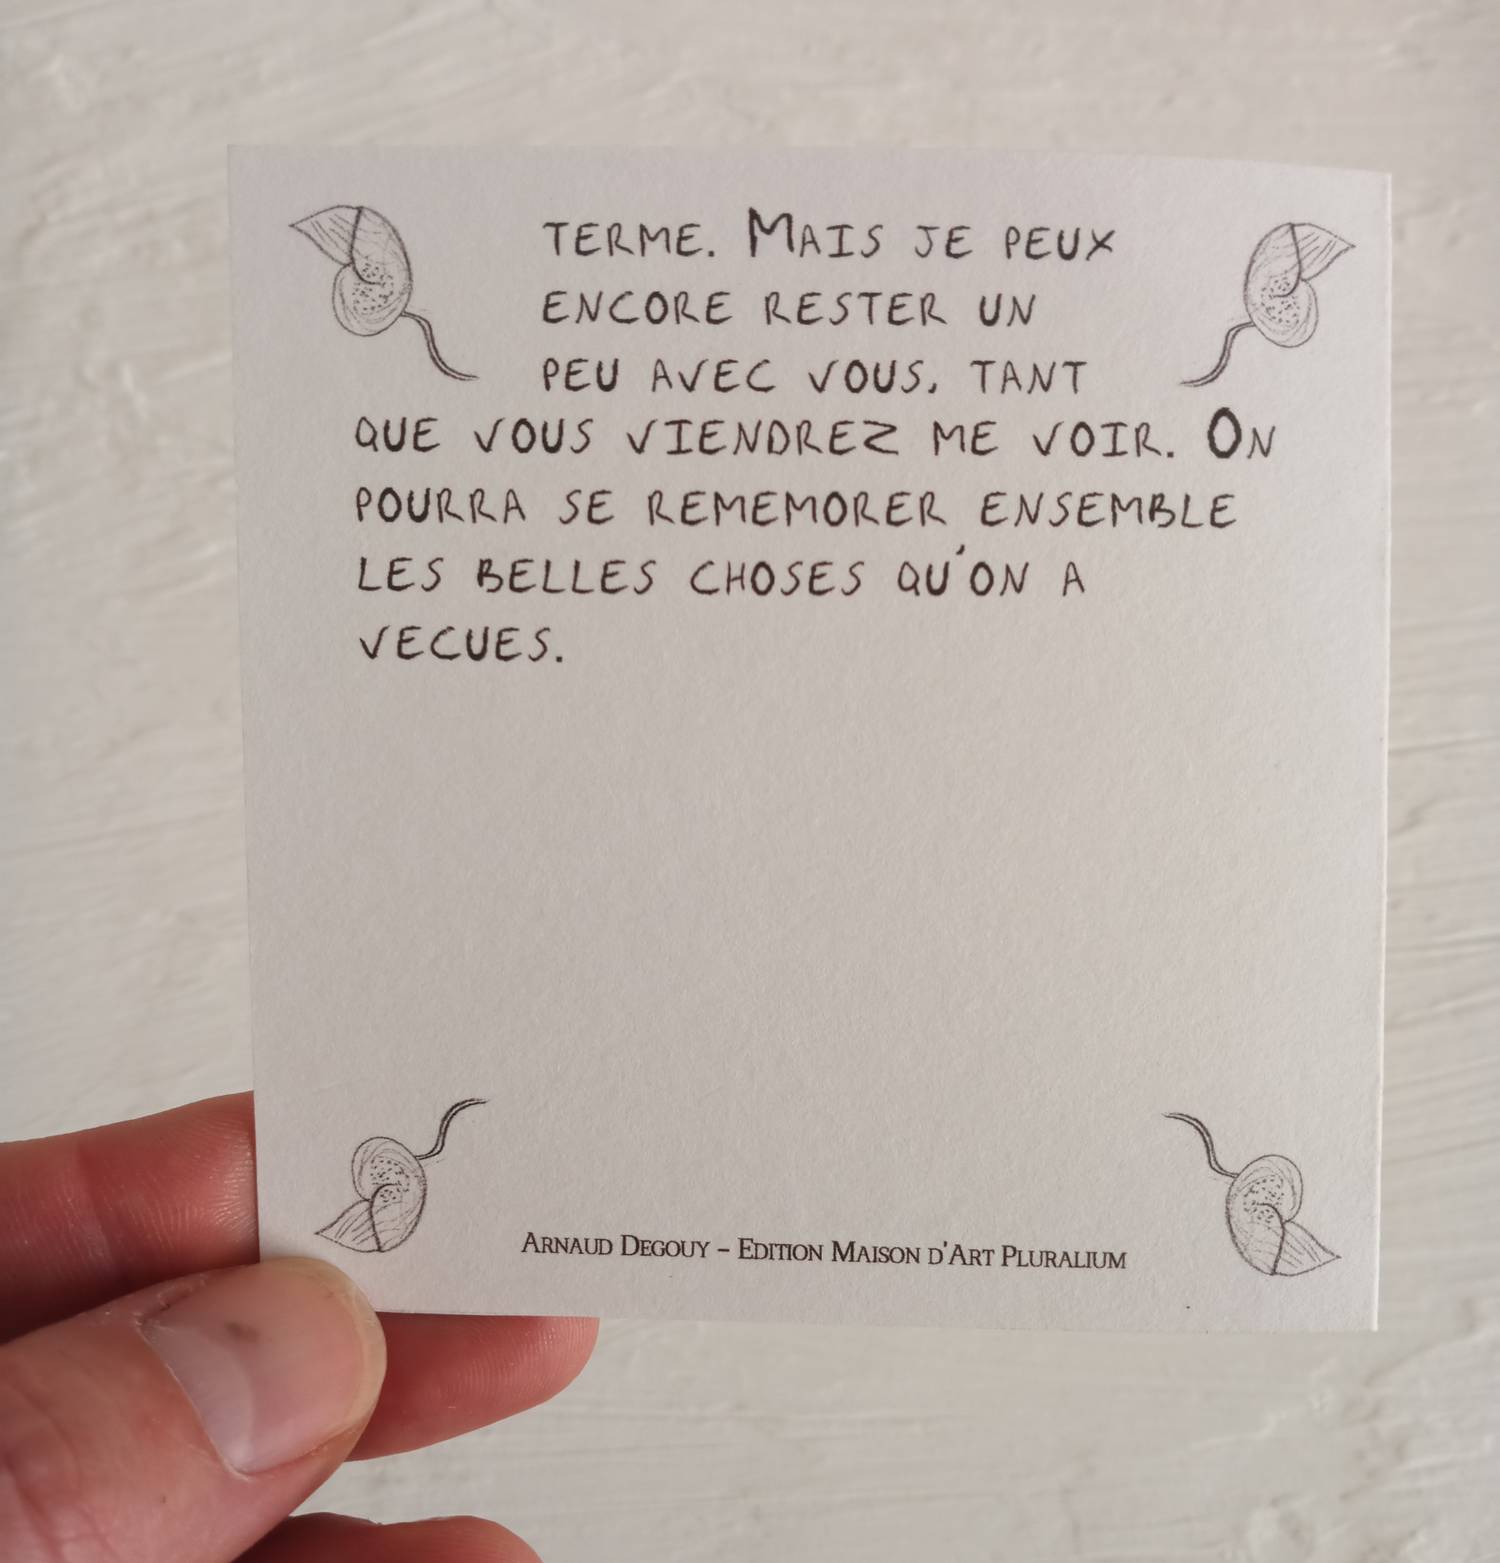 TERME. MAIS JE PEUX
ENCORE RESTER UN
PEU AVEC VOUS, TANT
QUE VOUS VIENDREZ ME VOIR. ON
POURRA SE REMEMORER ENSEMBLE
LES BELLES CHOSES QU'ON A
VECUES.
ARNAUD DEGOUY – EDITION MAISON D'ART PLURALIUM